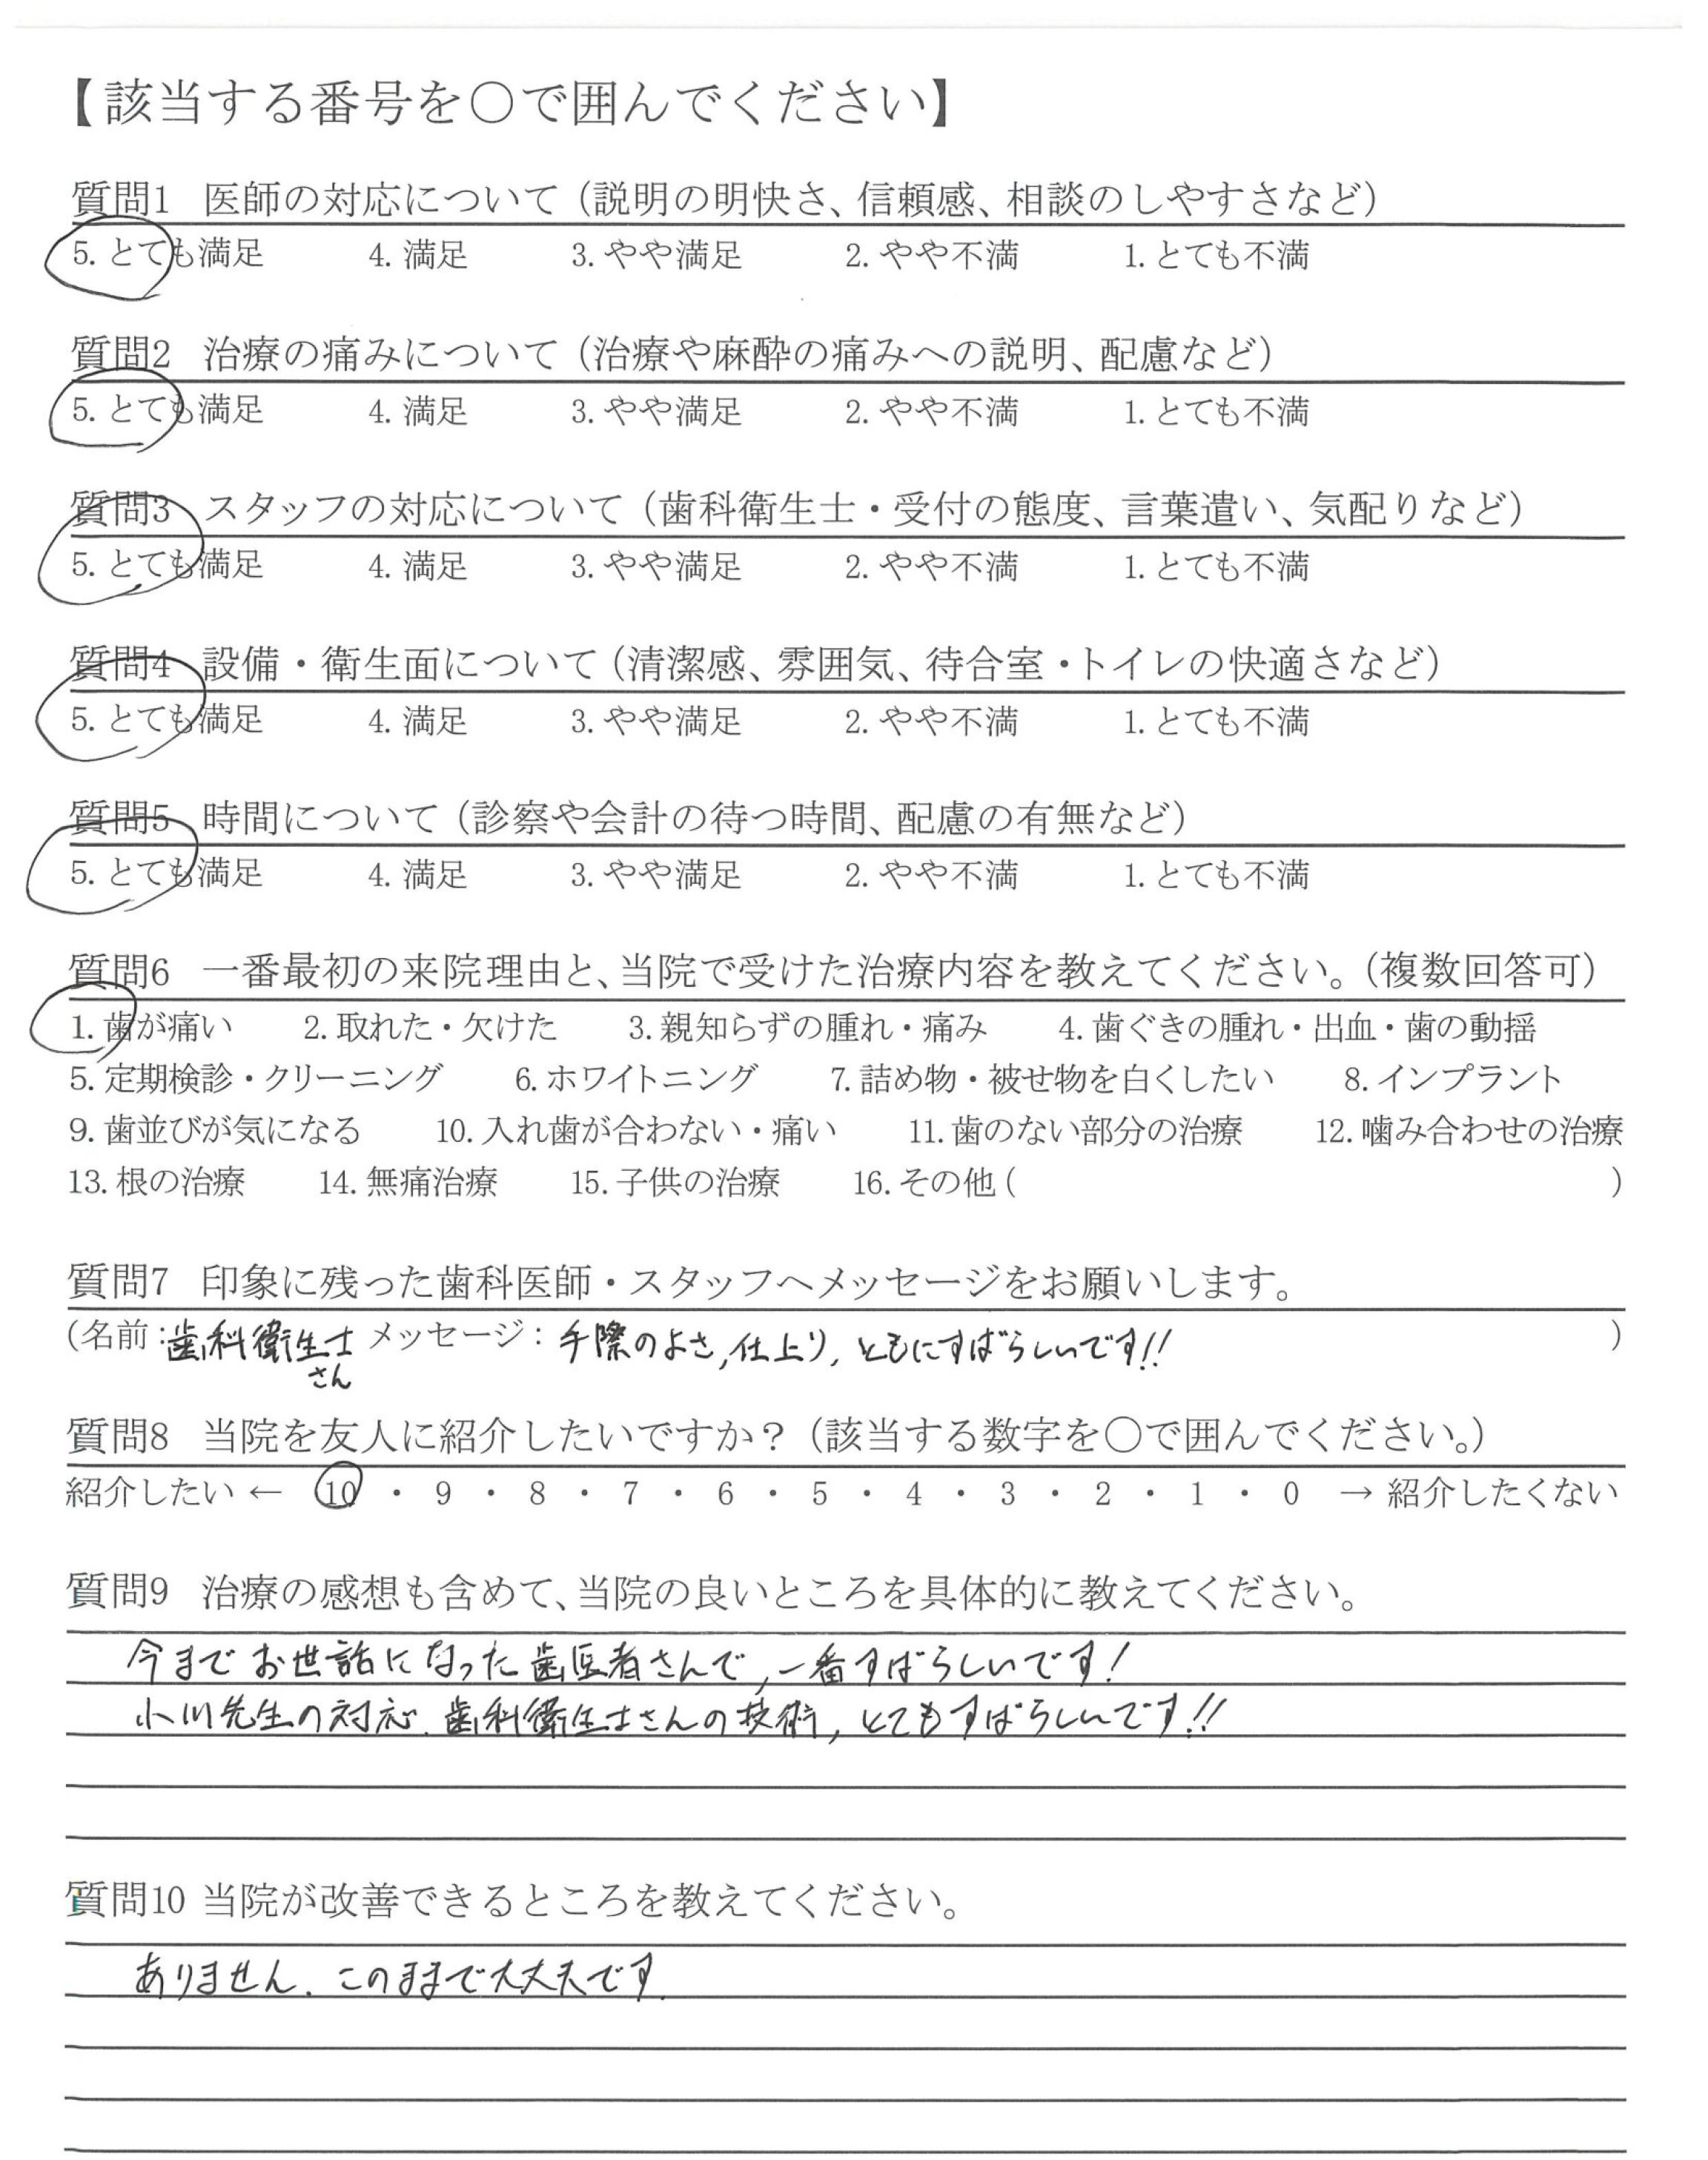 【該当する番号を○で囲んでください】
質問1 医師の対応について（説明の明快さ、信頼感、相談のしやすさなど）
5. とても満足 4. 満足 3. やや満足 2. やや不満 1. とても不満
質問2 治療の痛みについて（治療や麻酔の痛みへの説明、配慮など）
5. とても満足 4. 満足 3. やや満足 2. やや不満 1. とても不満
質問3 スタッフの対応について（歯科衛生士・受付の態度、言葉遣い、気配りなど）
5. とても満足 4. 満足 3. やや満足 2. やや不満 1. とても不満
質問4 設備・衛生面について（清潔感、雰囲気、待合室・トイレの快適さなど）
5. とても満足 4. 満足 3. やや満足 2. やや不満 1. とても不満
質問5 時間について（診察や会計の待つ時間、配慮の有無など）
5. とても満足 4. 満足 3. やや満足 2. やや不満 1. とても不満
質問6 一番最初の来院理由と、当院で受けた治療内容を教えてください。（複数回答可）
1. 歯が痛い 2. 取れた・欠けた 3. 親知らずの腫れ・痛み 4. 歯ぐきの腫れ・出血・歯の動揺
5. 定期検診・クリーニング 6. ホワイトニング 7. 詰め物・被せ物を白くしたい 8. インプラント
9. 歯並びが気になる 10. 入れ歯が合わない・痛い 11. 歯のない部分の治療 12. 噛み合わせの治療
13. 根の治療 14. 無痛治療 15. 子供の治療 16. その他 ( )
質問7 印象に残った歯科医師・スタッフへメッセージをお願いします。
（名前：歯科衛生士 メッセージ：手際のよさ,仕上り,ともにすばらしいです!! ）
さん
質問8 当院を友人に紹介したいですか？（該当する数字を○で囲んでください。）
紹介したい ← 10 ・ 9 ・ 8 ・ 7 ・ 6 ・ 5 ・ 4 ・ 3 ・ 2 ・ 1 ・ 0 → 紹介したくない
質問9 治療の感想も含めて、当院の良いところを具体的に教えてください。
今までお世話になった歯医者さんで,一番すばらしいです!
小川先生の対応.歯科衛生士さんの技術,とてもすばらしいです!!
質問10 当院が改善できるところを教えてください。
ありません.このままで大丈夫です.